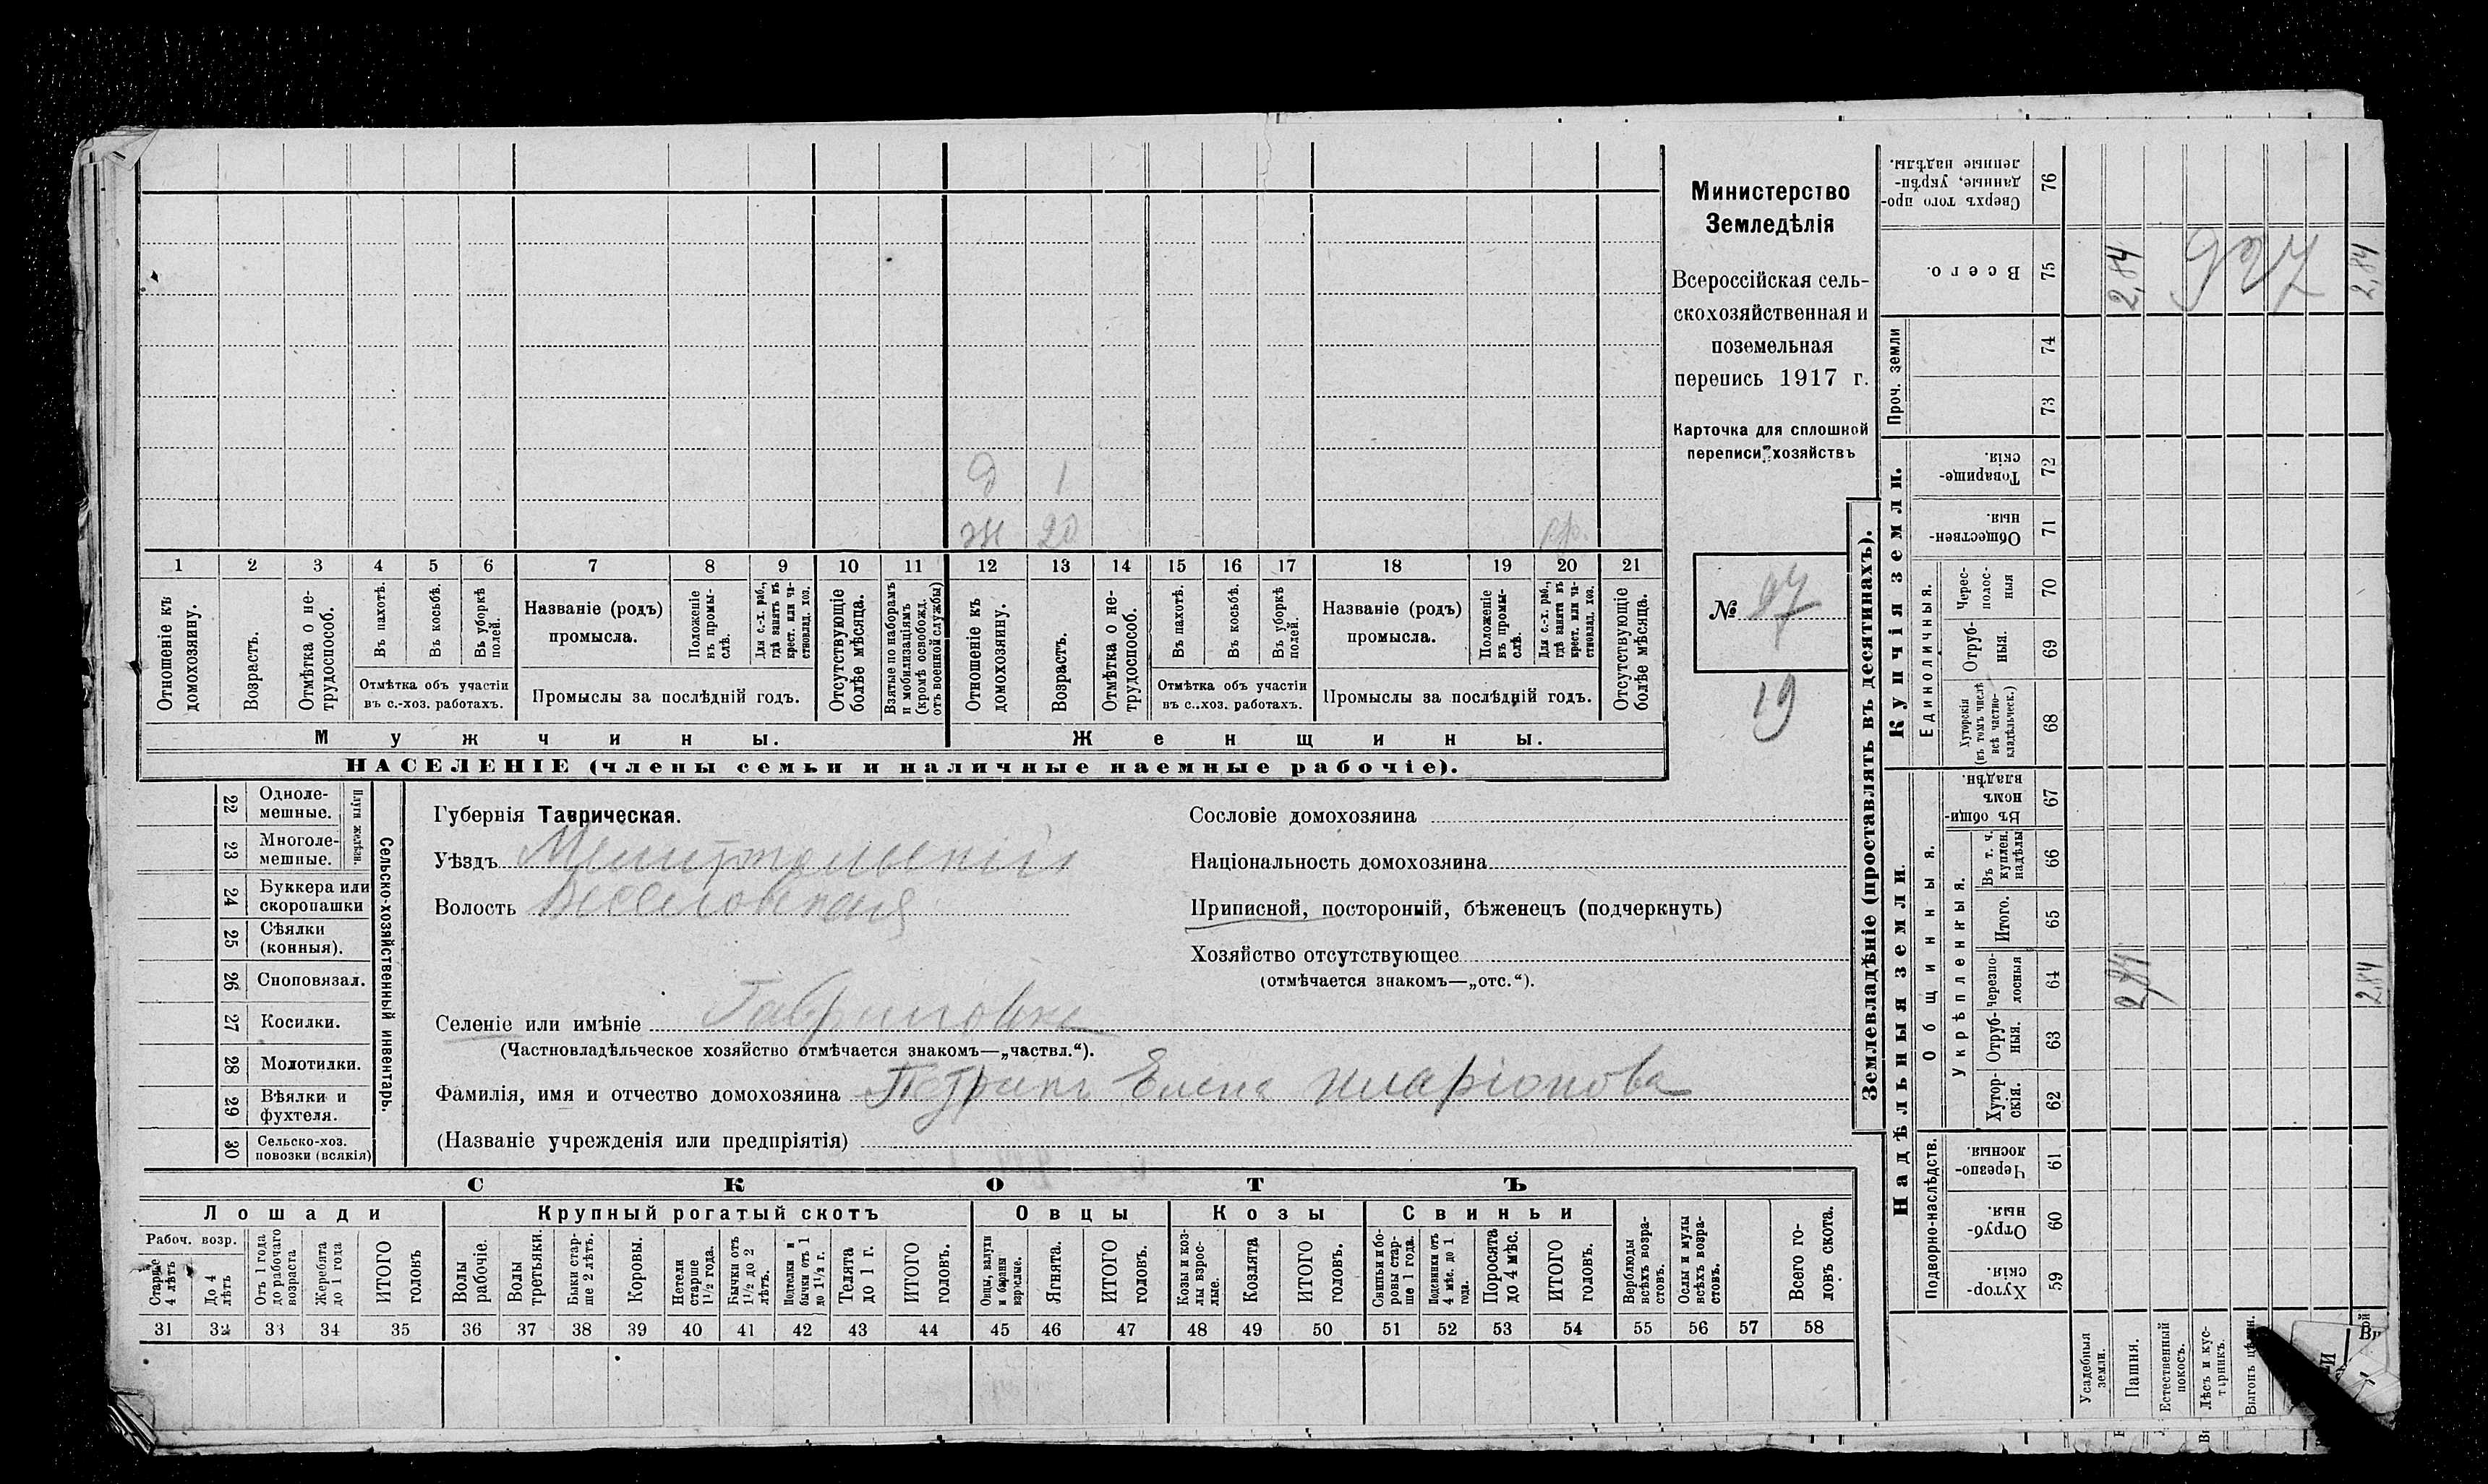 д 1
ж 20 гр.
1 2 3 4 5 6 7 8 9 10 11 12 13 14 15 16 17 18 19 20 21
Отношеніе къ домохозяину.
Возрастъ.
Отмѣтка о нетрудоспособ.
Въ пахотѣ.
Въ косьбѣ.
Въ уборкѣ полей.
Отмѣтка объ участіи въ с.-хоз. работахъ.
Названіе (родъ) промысла.
Положеніе въ промыслѣ.
Для с.-х. раб., гдѣ занятъ въ крест. или частновлад. хоз.
Промыслы за послѣдній годъ.
Отсутствующіе болѣе мѣсяца.
Взятые по наборамъ и мобилизаціямъ (кромѣ освобожд. отъ военной службы)
Отношеніе къ домохозяину.
Возрастъ.
Отмѣтка о нетрудоспособ.
Въ пахотѣ.
Въ косьбѣ.
Въ уборкѣ полей.
Отмѣтка объ участіи въ с.-хоз. работахъ.
Названіе (родъ) промысла.
Положеніе въ промыслѣ.
Для с.-х. раб., гдѣ занята въ крест. или частновлад. хоз.
Промыслы за послѣдній годъ.
Отсутствующіе болѣе мѣсяца.
Мужчины. Женщины.
НАСЕЛЕНІЕ (члены семьи и наличные наемные рабочіе).
Министерство
Земледѣлія
Всероссійская сель-
скохозяйственная и
поземельная
перепись 1917 г.
Карточка для сплошной
переписи хозяйствъ
№ 27
19
22 Однолемешные.
23 Многолемешные.
Плуги желѣзн.
24 Буккера или скоропашки
25 Сѣялки (конныя).
26 Сноповязал.
27 Косилки.
28 Молотилки.
29 Вѣялки и фухтеля.
30 Сельско-хоз. повозки (всякія)
Сельско-хозяйственный инвентарь.
Губернія Таврическая.
Уѣздъ Мелитопольскій
Волость Веселовская
Сословіе домохозяина
Національность домохозяина
Приписной, посторонній, бѣженецъ (подчеркнуть)
Хозяйство отсутствующее
(отмѣчается знакомъ—„отс.“).
Селеніе или имѣніе Гавриловка
(Частновладѣльческое хозяйство отмѣчается знакомъ—„частвл.“).
Фамилія, имя и отчество домохозяина Петрикъ Елена Иларіонова
(Названіе учрежденія или предпріятія)
СКОТЪ
Лошади Крупный рогатый скотъ Овцы Козы Свиньи
Рабоч. возр.
Старше 4 лѣтъ
До 4 лѣтъ
Отъ 1 года до рабочаго возраста
Жеребята до 1 года
ИТОГО головъ
Волы рабочіе.
Волы третьяки.
Быки старше 2 лѣтъ.
Коровы.
Нетели старше 1½ года.
Бычки отъ 1½ до 2 лѣтъ.
Подтелки и бычки отъ 1 до 1½ г.
Телята до 1 г.
ИТОГО головъ.
Овцы, валухи и бараны взрослые.
Ягнята.
ИТОГО головъ.
Козы и козлы взрослые.
Козлята
ИТОГО головъ.
Свиньи и боровы старше 1 года.
Подсвинки отъ 4 мѣс. до 1 года.
Поросята до 4 мѣс.
ИТОГО головъ.
Верблюды всѣхъ возрастовъ.
Ослы и мулы всѣхъ возрастовъ.
Всего головъ скота.
31 32 33 34 35 36 37 38 39 40 41 42 43 44 45 46 47 48 49 50 51 52 53 54 55 56 57 58
Землевладѣніе (проставлять въ десятинахъ).
Сверхъ того проданные, укрѣпленные надѣлы. 76
Всего. 75 2,84 2,84
Проч. земли 74 73
Купчія земли.
Товарищескія. 72
Общественныя. 71
Единоличныя.
Чересполосныя 70
Отрубныя. 69
Хуторскія (въ томъ числѣ всѣ частновладѣльческ.) 68
Надѣльныя земли.
Общинныя.
Въ общинномъ владѣн. 67
Укрѣпленныя.
Въ т. ч. куплен. надѣлы 66
Итого. 65
Черезполосныя 64 2,84 2,84
Отрубныя. 63
Хуторскія. 62
Подворно-наслѣдств.
Черезполосныя. 61
Отрубныя. 60
Хуторскія. 59
Усадебныя земли.
Пашня.
Естественный покосъ.
Лѣсъ и кустарникъ.